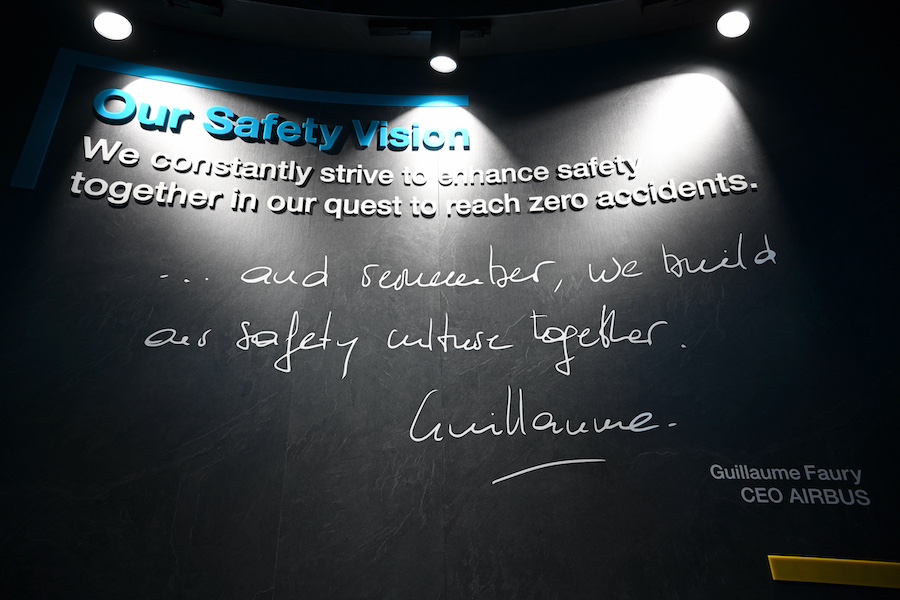 Our Safety Vision
We constantly strive to enhance safety
together in our quest to reach zero accidents.
... and remember, we build
our safety culture together.
Guillaume.
Guillaume Faury
CEO AIRBUS